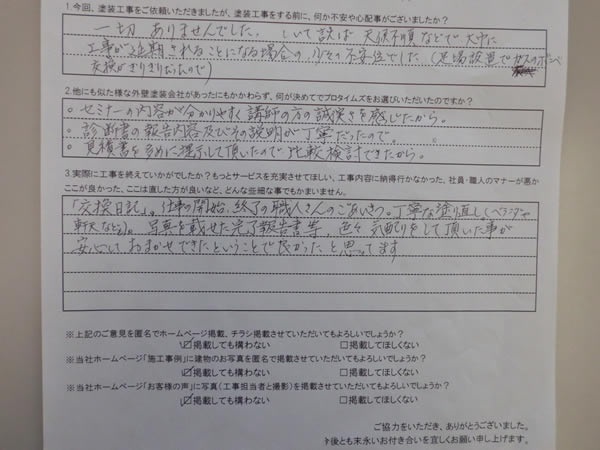 1.今回、塗装工事をご依頼いただきましたが、塗装工事をする前に、何か不安や心配事がございましたか？
一切 ありませんでした。しいて言えば 天候不順などで大巾に
工事が延期されることになる場合の、少々の不安位でした（足場設置でガスのボンベ
交換がぎりぎりだったので）
2.他にも似た様な外壁塗装会社があったにもかかわらず、何が決めてでプロタイムズをお選びいただいたのですか？
○ セミナーの内容が分かりやすく講師の方の誠実さを感じたから。
○ 診断書の報告内容及びその説明が丁寧だったので。
○ 見積書を多めに提示して頂いたので比較検討できたから。
3.実際に工事を終えていかがでしたか？もっとサービスを充実させてほしい、工事内容に納得行かなかった、社員・職人のマナーが悪か
ここが良かった、ここは直した方が良いなど、どんな些細な事でもかまいません。
「交換日記」。仕事の開始、終了の職人さんのごあいさつ。丁寧な塗り直し（ベランダや
軒天など）。写真を載せた完了報告書等、色々 気配りをして頂いた事が
安心して おまかせできたということで良かったと思ってます
※上記のご意見を匿名でホームページ掲載、チラシ掲載させていただいてもよろしいでしょうか？
☑掲載しても構わない □掲載してほしくない
※当社ホームページ「施工事例」に建物のお写真を匿名で掲載させていただいてもよろしいでしょうか？
☑掲載しても構わない □掲載してほしくない
※当社ホームページ「お客様の声」に写真（工事担当者と撮影）を掲載させていただいてもよろしいでしょうか？
☑掲載しても構わない □掲載してほしくない
ご協力をいただき、ありがとうございました。
今後とも末永いお付き合いを宜しくお願い申し上げます。